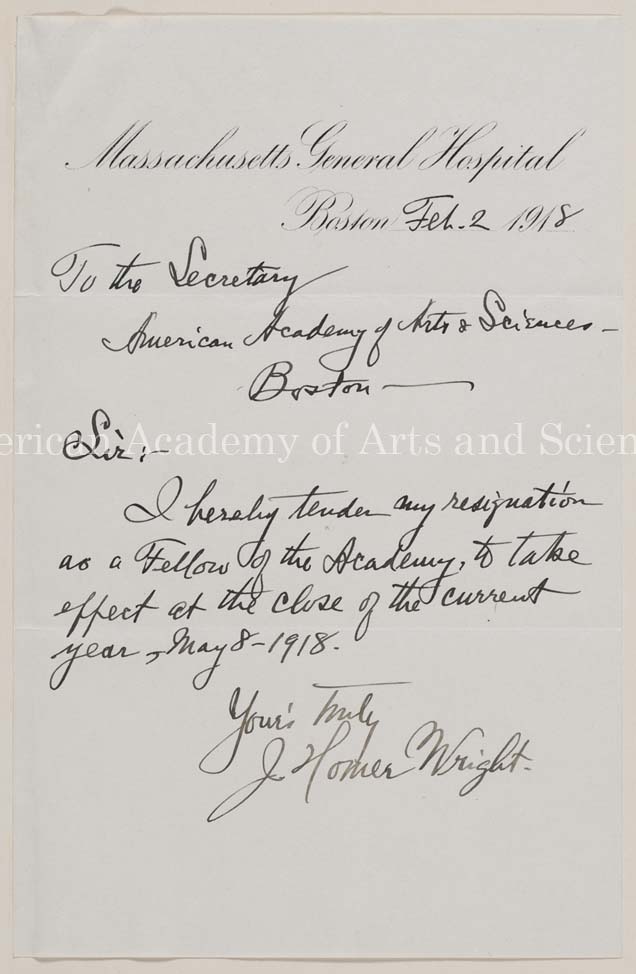 Massachusetts General Hospital
Boston Feb. 2 1918
To the Secretary
American Academy of Arts & Sciences -
Boston —
American Academy of Arts and Scien
Sir:-
I hereby tender my resignation
as a Fellow of the Academy, to take
effect at the close of the current
year, May 8-1918.
Your's truly
J. Homer Wright.